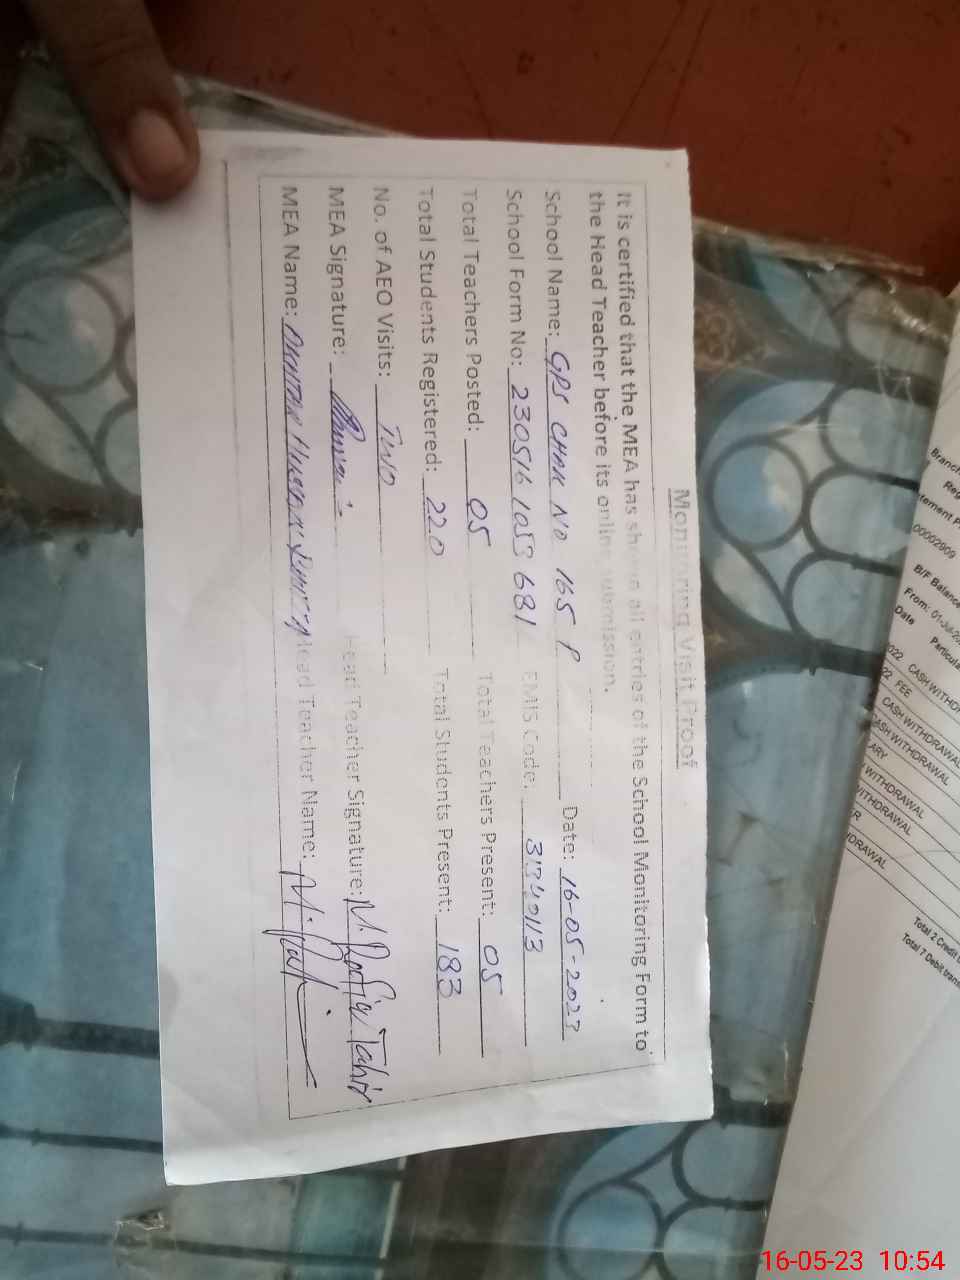 Monitoring Visit Proof
It is certified that the MEA has shown all entries of the School Monitoring Form to
the Head Teacher before its online submission.
School Name: GPS CHAK NO 165 P Date: 16-05-2023
School Form No: 230516 1053 681 EMIS Code:
Total Teachers Posted: 05 Total Teachers Present: 05
Total Students Registered: 220 Total Students Present: 183
No. of AEO Visits: TWO
MEA Signature: Head Teacher Signature: M. Rafiq Tahir
MEA Name: Head Teacher Name:
Branch
Reg
tement P
00002909
B/F Balance
From: 01-Jul-20
Date Particula
022 CASH WITHD
22 FEE
CASH WITHDRAWAL
CASH WITHDRAWAL
ARY
WITHDRAWAL
WITHDRAWAL
R
HDRAWAL
Total 2 Credit
Total 7 Debit tran
16-05-23 10:54